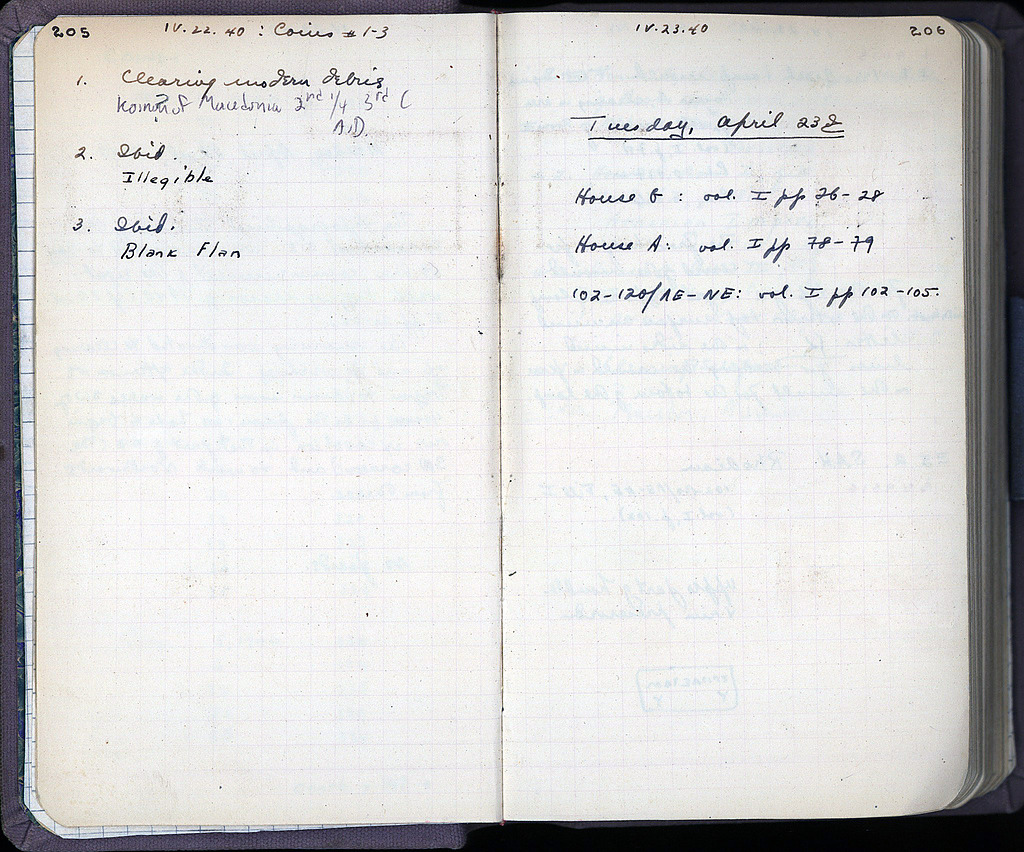 205
IV.22.40 : Coins # 1-3
1. Clearing modern debris
Koinon of Macedonia 2nd 1/4 3rd C
A.D.
2. Ibid.
Illegible
3. Ibid.
Blank Flan
IV.23.40
206
Tuesday, April 23rd
House G : vol. I pp 26-28
House A : vol. I pp 78-79
102-120/ΛE-NE: vol. I pp 102-105.